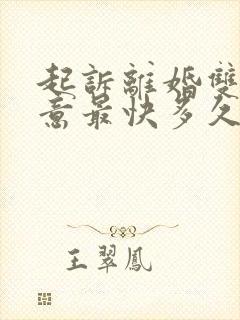 起訴離婚雙
意最快多久
王翠鳳